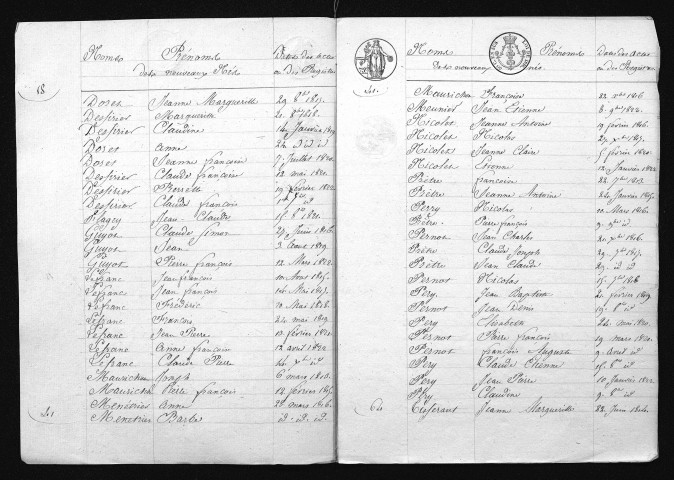 Noms Prénoms Dates des actes
des nouveaux Nés ou des Registres
18
Doses Jeanne Marguerite 29 8bre 1817.
Desprier Marguerite 20. 8bre 1818.
Desprier Claudine 14 Janvier 1819
Doses anne 24 id id
Doses Jeanne françoise 7. Juillet 1820.
Desprier Claude françois 12 mai 1820.
Desprier Pierrette 19 février 1822
Desprier Claude françois id
Flagey Jean Claude 15 8bre 1821.
Guyot Claude Simon 29 Juin 1816
Guyot Jean 3 aout 1819.
Guyot Pierre françois 12 Mars 1822.
Lefranc Jean françois 10 Aout 1815.
Lefranc Jean françois 14 Mai 1817.
Lefranc Frédéric 10 Mai 1818.
Lefranc François 24 mai 1819.
Lefranc Jean Pierre 13 février 1820.
Lefranc Anne françoise 12 avril 1822
Lefranc Claude Pierre id
Mauricheu Joseph 6 mars 1813.
Mauricheu Pierre françois 12 février 1815.
Menétrier Anne 28 mars 1816.
Menetrier Barbe id. id. id.
41
Noms Prénoms Dates des actes
des nouveaux nés ou des Registres
41
Mauricheu Françoise 1816.
Meunier Jean Etienne 8. 9bre 1822.
Nicolet Jeanne Antoine 19 février 1816.
Nicolet Nicolas 1817.
Nicolet Jeanne Claire 5 février 1820.
Nicolet Etienne 12 Janvier 1822
Prêtre francoise 1813.
Prêtre Jeanne Antoine 24 Janvier 1815.
Perry Nicolas 10 Mars 1816.
Pêtre. Pierre françois 9. id
Pernot Jean Charles 1816.
Prêtre Claude Joseph 1817.
Prêtre Jean Claude 29. id id
Pernot Nicolas 1818
Pery Jean Baptiste 21 février 1819.
Pernot Jean Denis id
Pery Elisabeth 24 mai 1820.
Pernot Pierre françois 19 mars 1820.
Pernot françois Auguste 9 Avril id
Pery Claude Etienne 15. 8bre id
Pery Jean Pierre 10 Janvier 1822.
Pery Claudine 9. 8bre id
64 Jeanne Marguerite 22 Juin 1816.